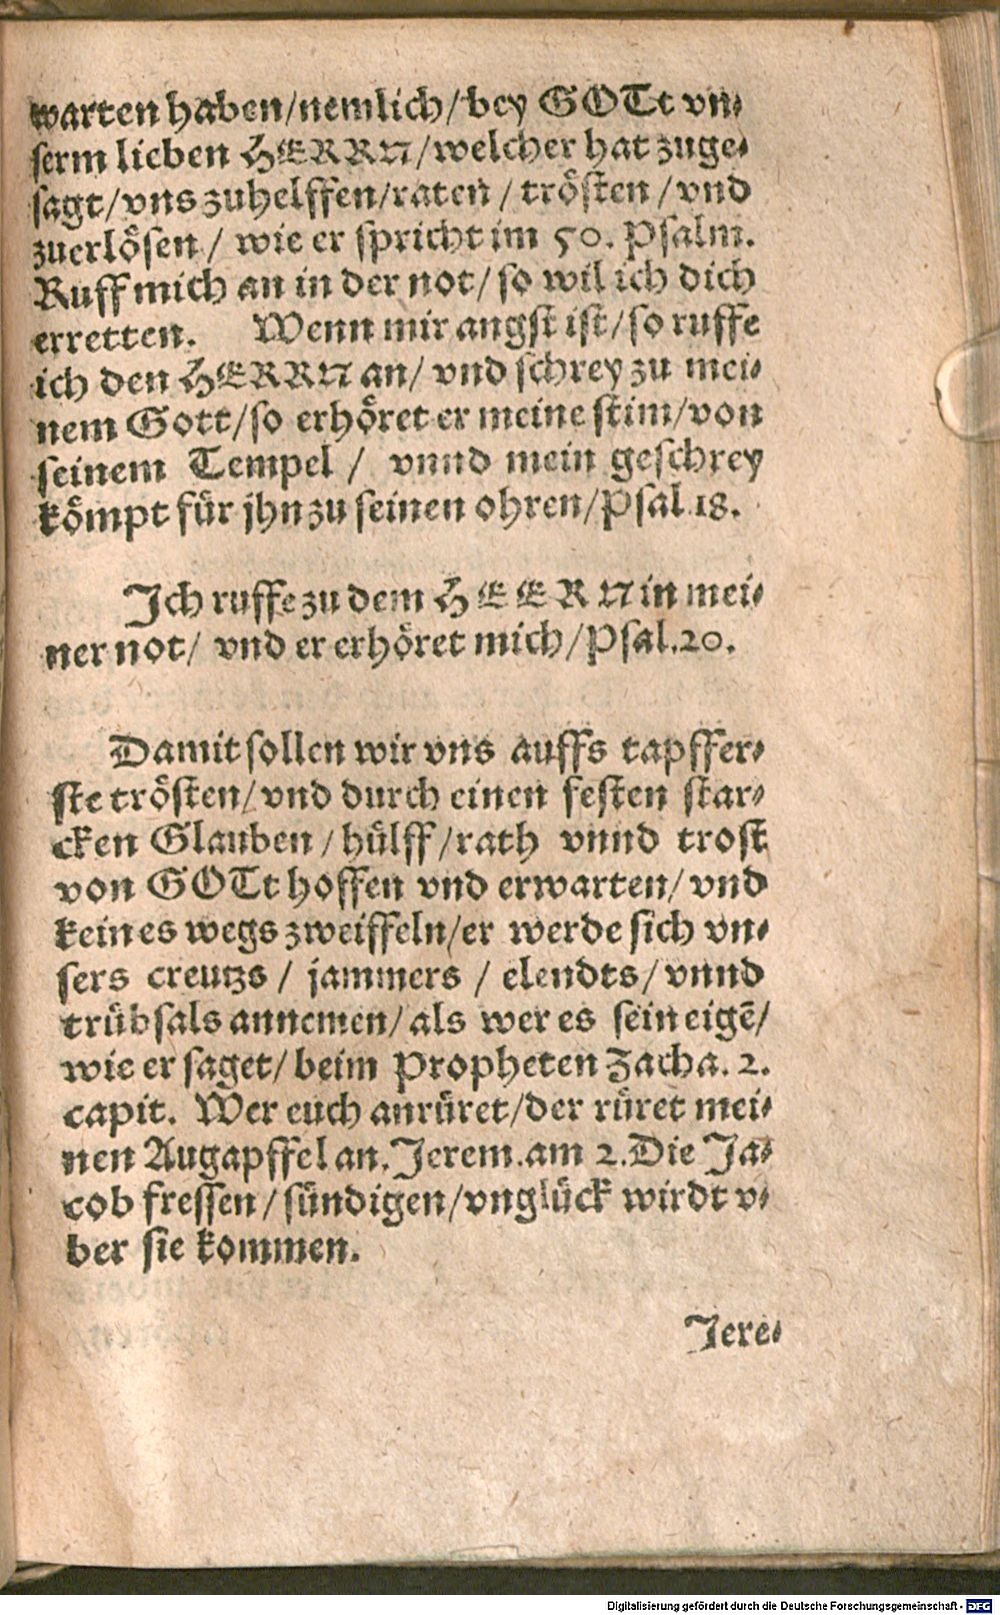 warten haben/nemlich/bey GOTt vn-
serm lieben HERRN/welcher hat zuge-
sagt/vns zuhelffen/raten / trösten / vnd
zuerlösen / wie er spricht im 50. Psalm.
Ruff mich an in der not/ so wil ich dich
erretten. Wenn mir angst ist/so ruffe
ich den HERRN an/ vnd schrey zu mei-
nem Gott/so erhöret er meine stim/von
seinem Tempel / vnnd mein geschrey
kömpt für jhn zu seinen ohren/Psal.18.
Ich ruffe zu dem HEERN in mei-
ner not/ vnd er erhöret mich/Psal.20.
Damit sollen wir vns auffs tapffer-
ste trösten/vnd durch einen festen star-
cken Glauben / hülff/rath vnnd trost
von GOTt hoffen vnd erwarten/ vnd
keines wegs zweiffeln/er werde sich vn-
sers creutzs / jammers / elendts/ vnnd
trübsals annemen/ als wer es sein eigē/
wie er saget/ beim Propheten Zacha. 2.
capit. Wer euch anrüret/der rüret mei-
nen Augapffel an. Jerem. am 2. Die Ja-
cob fressen/sündigen/vnglück wirdt v-
ber sie kommen.
Jere-
Digitalisierung gefördert durch die Deutsche Forschungsgemeinschaft - DFG